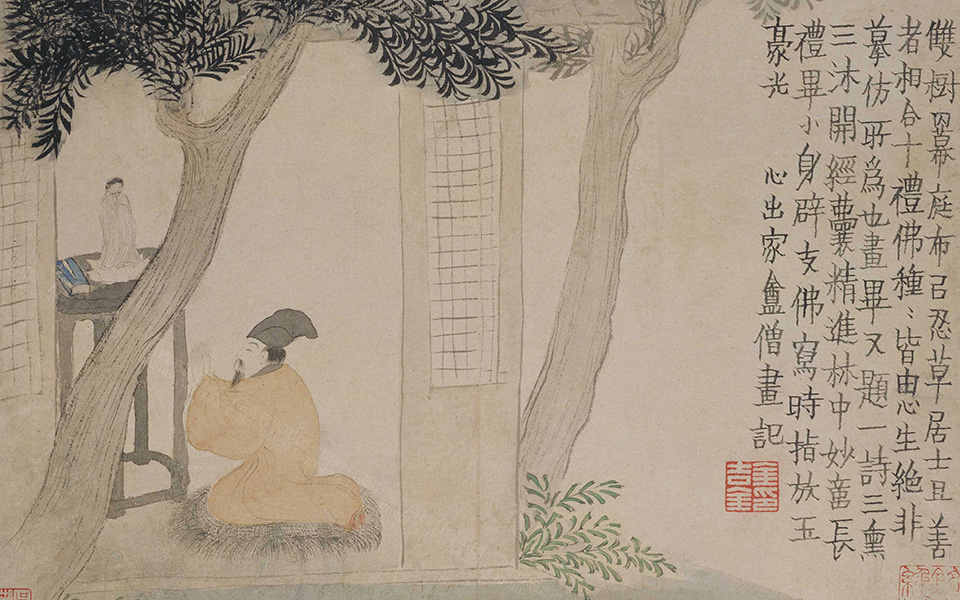 雙樹罨幕庭布㠯忍草居士且善
者相合十禮佛種〻皆由心生絕非
摹仿所爲也畫畢又題一詩三熏
三沐開經囊精進林中妙童長
禮畢小身辟支佛寫時指放玉
豪光　心出家盦僧畫記
金印吉金